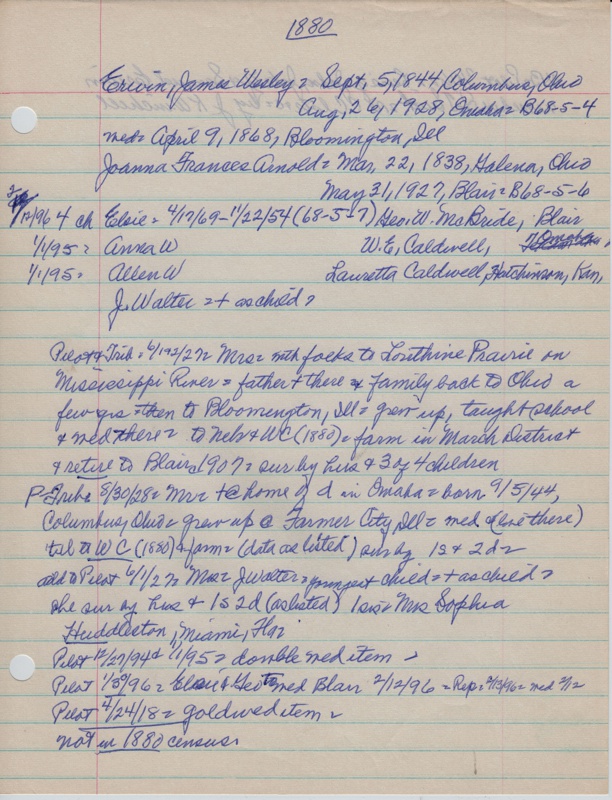 1880
Erwin, James Wesley = Sept, 5, 1844, Columbus, Ohio
Aug, 26, 1928, Omaha = B68-5-4
med = April 9, 1868, Bloomington, Ill
Joanna Frances Arnold = Mar, 22, 1838, Galena, Ohio
May 31, 1927, Blair = B68-5-6
2/12/96 4 ch Elsie = 4/17/69 - 11/22/54 (68-5-7) Geo. W. McBride, Blair
1/1/95 = Anna W W. E. Caldwell, Omaha
1/1/95 = Allen W Lauretta Caldwell, Hutchinson, Kan,
J. Walter = + as child =
Pilot & Trib = 6/1927 = Mrs = with folks to Prairie on
Mississippi River = father + there & family back to Ohio a
few yrs = then to Bloomington, Ill = grew up, taught school
& med there = to Neb & WC (1880) = farm in March District
& retire to Blair, 1907 = sur by hus & 3 of 4 children
P-Tribe 8/30/28 = Mr = + @ home of d in Omaha = born 9/5/44,
Columbus, Ohio = grew up @ Farmer City, Ill = med & (live there)
til to WC (1880) & farm = (data as listed) sur by 1s & 2d =
add to Pilot 6/1/27 = Mrs = J Walter = youngest child = + as child =
she sur by hus & 1s 2d (as listed) 1 sis = Mrs Sophia
Huddleston, Miami, Fla
Pilot 12/27/94 & 1/1/95 = double med item =
Pilot 1/30/96 = Elsie & Geo to med Blair 2/12/96 = Rep = 2/13/96 = med 2/12
Pilot 4/24/18 = gold wed item =
not in 1880 census.